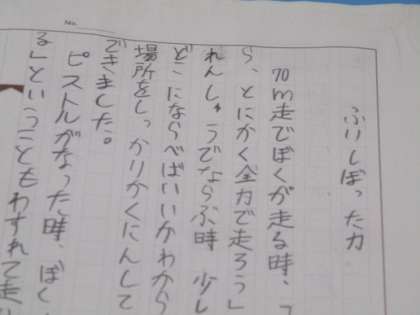 No.
ふりしぼった力
70m走でぼくが走る時、「
ら、とにかく全力で走ろう」
れんしゅうでならぶ時、少し
どこにならべばいいかわから
場所をしっかりかくにんして
できました。
ピストルがなった時、ぼく
る」ということもわすれて走